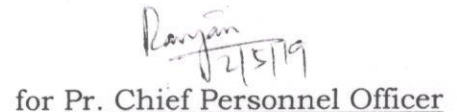 2/5/19
for Pr. Chief Personnel Officer